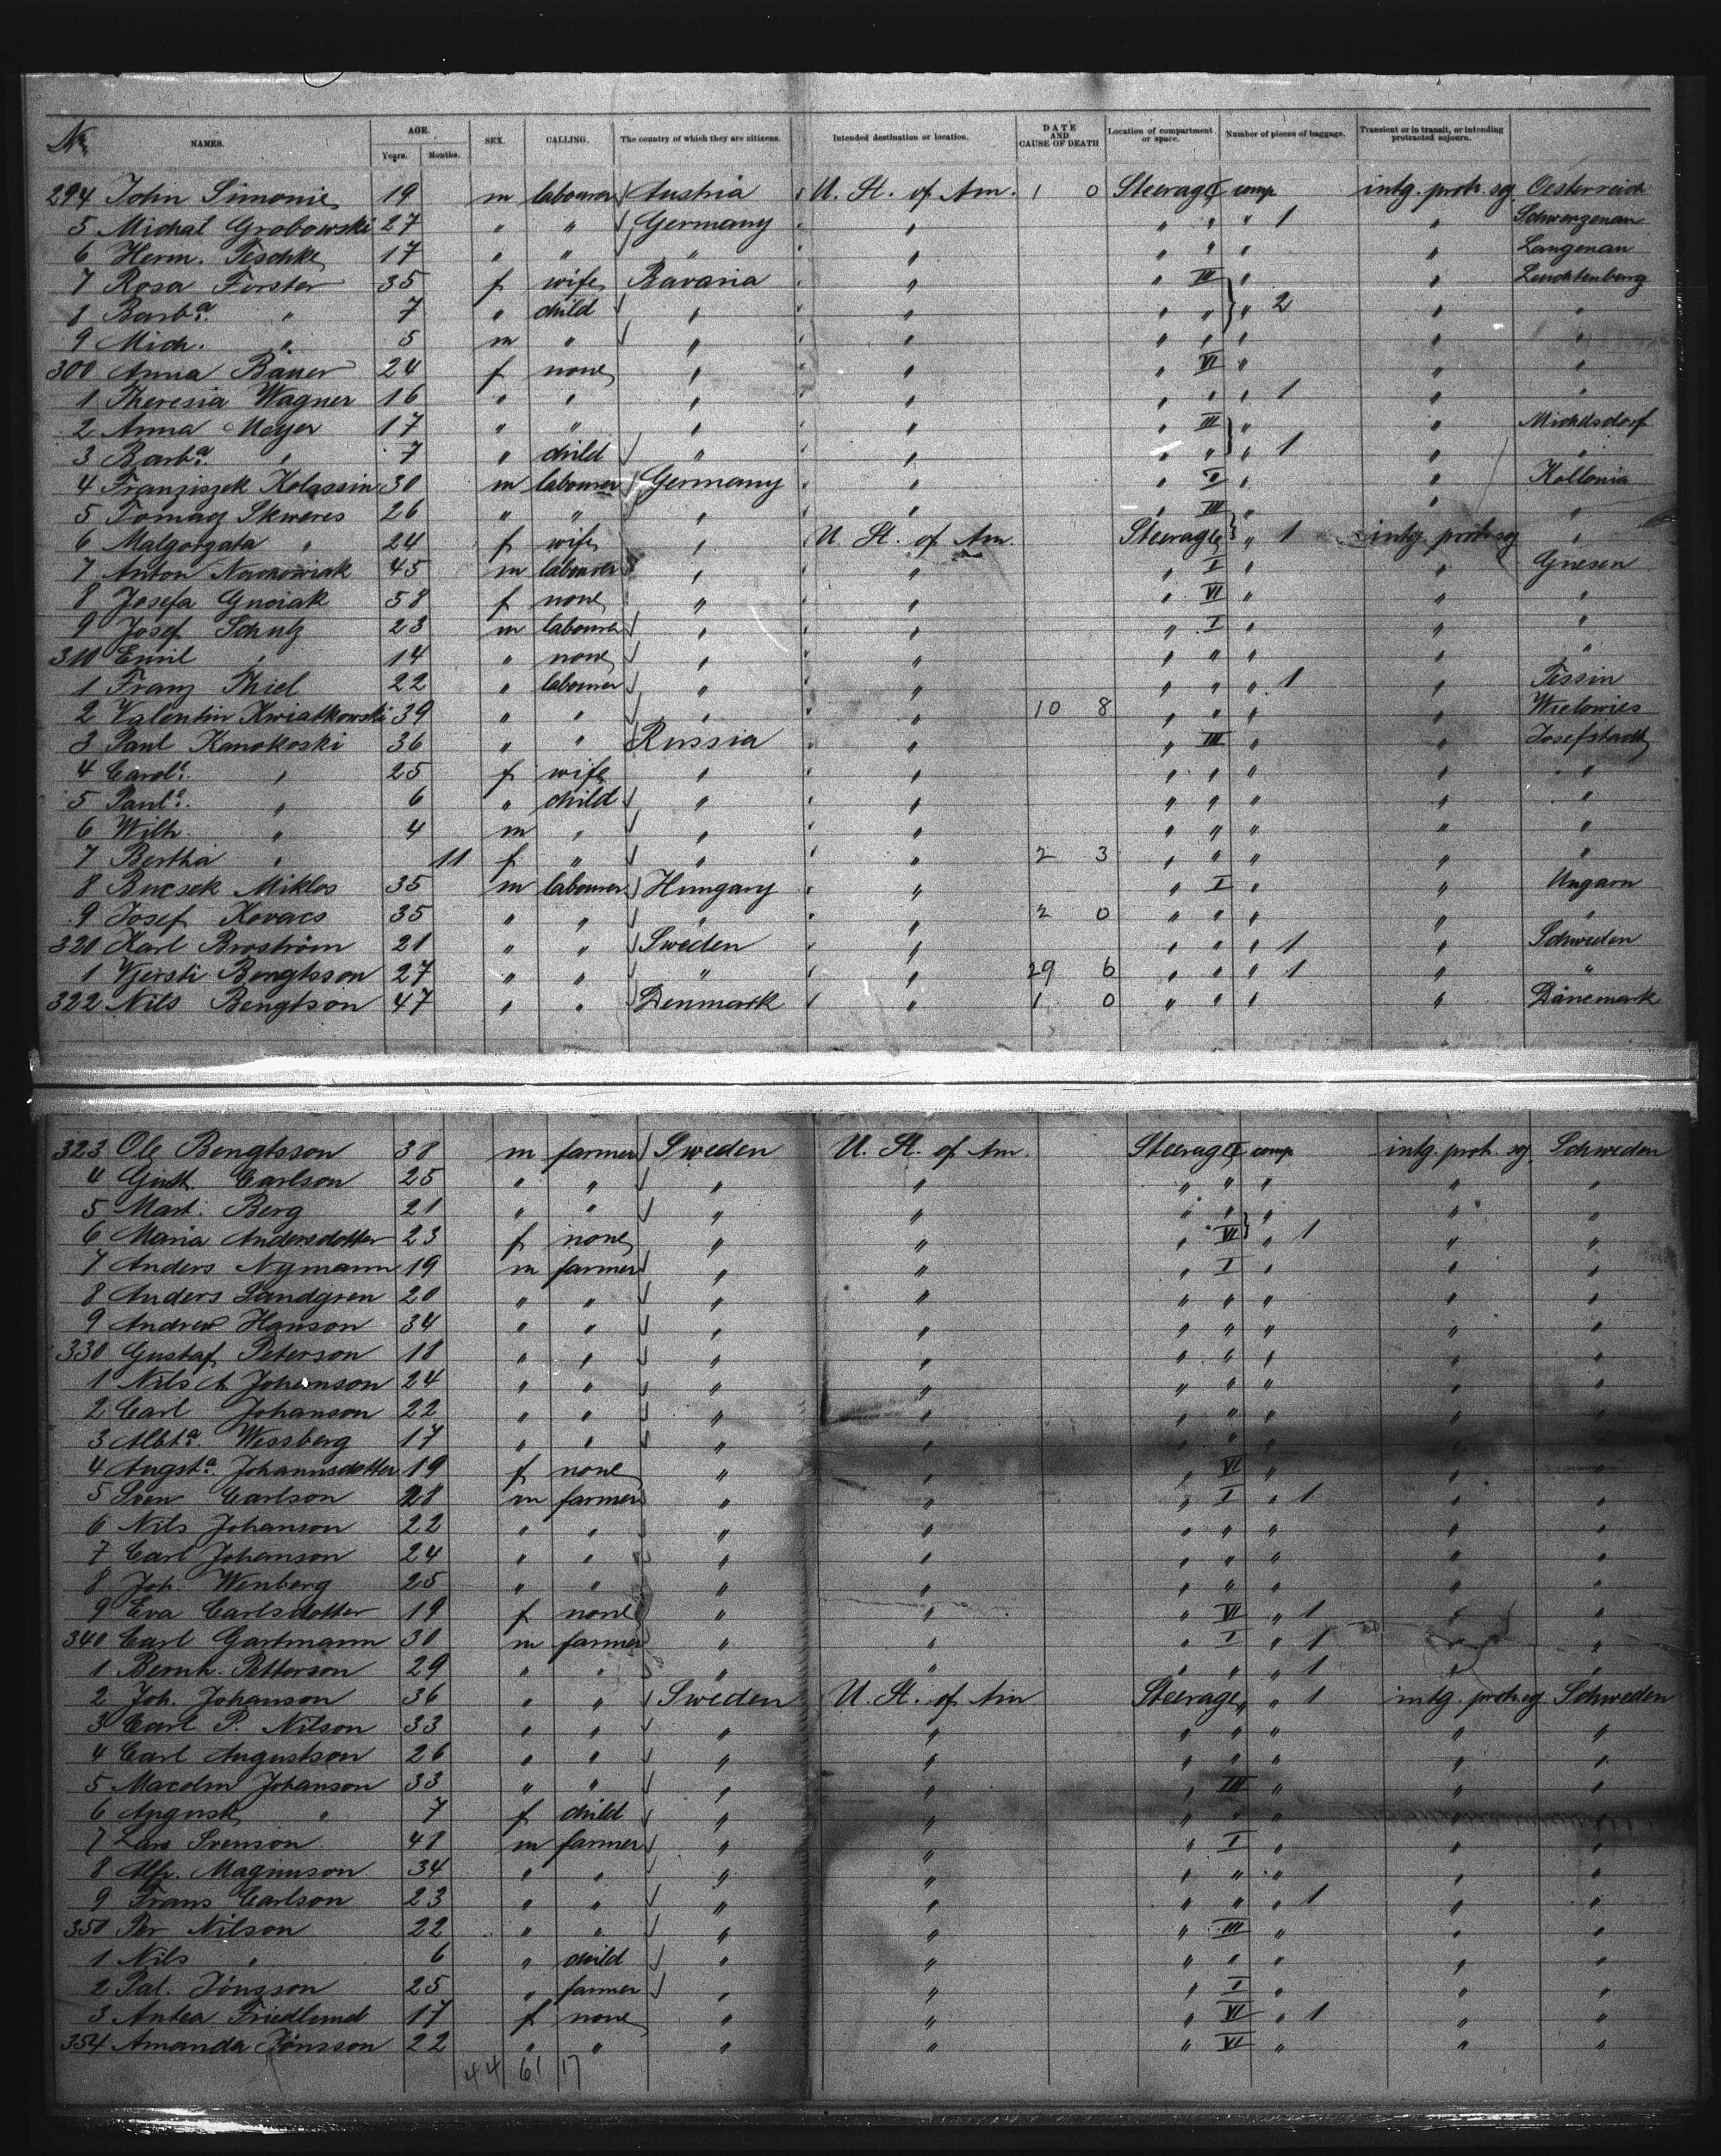 No. NAMES. AGE. Years. Months. SEX. CALLING. The country of which they are citizens. Intended destination or location. DATE AND CAUSE OF DEATH Location of compartment or space. Number of pieces of baggage. Transient or in transit, or intending protracted sojourn.
294 John Simonie 19 m labourer Austria U. St. of Am. 1 0 Steerage I comp intg. protr. soj Oesterreich
5 Michal Grabowski 27 " " Germany " " " " 1 " Schwarzenau
6 Herm. Teschke 17 " " " " " " " " Langenau
7 Rosa Forster 35 f wife Bavaria " " III " " Leuchtenberg
8 Barba. " 7 " child " " " " " 2 " "
9 Mich. " 5 m " " " " " " " "
300 Anna Bauer 24 f none " " " VI " " "
1 Theresia Wagner 16 " " " " " " " 1 " "
2 Anna Meyer 17 " " " " " III " " Michelsdorf
3 Barba. " 7 " child " " " " " 1 " "
4 Franziszek Kolassin 30 m labourer Germany " " I " " Kollonia
5 Tomasz Skweres 26 " " " " " III " " "
6 Malgorzata " 24 f wife " U. St. of Am. Steerage " 1 intg. protr. soj "
7 Anton Nawrowiak 45 m labourer " " " I " " Gnesen
8 Josefa Gnoiak 58 f none " " " VI " " "
9 Josef Schulz 23 m labourer " " " I " " "
310 Emil " 14 " none " " " " " " "
1 Franz Thiel 22 " labourer " " " " " 1 " Tessin
2 Valentin Kwiatkowski 39 " " " " 10 8 " " " " Wielowies
3 Paul Kanokoski 36 " " Russia " " III " " Josefstadt
4 Carole. " 25 f wife " " " " " " "
5 Paula. " 6 " child " " " " " " "
6 Wilh. " 4 m " " " " " " " "
7 Bertha " 11 f " " " 2 3 " " " " "
8 Bucsek Miklos 35 m labourer Hungary " " I " " Ungarn
9 Josef Kovacs 35 " " " " 2 0 " " " " "
320 Karl Broström 21 " " Sweden " " " " 1 " Schweden
1 Kjersti Bengtsson 27 " " " " 29 6 " " " 1 " "
322 Nils Bengtson 47 " " Denmark " 1 0 " " " " Dänemark
323 Ole Bengtsson 38 m farmer Sweden U. St. of Am. Steerage I comp intg. protr. soj Schweden
4 Gust. Carlson 25 " " " " " " " " "
5 Mart. Berg 21 " " " " " " " " "
6 Maria Andersdotter 23 f none " " " VI " 1 " "
7 Anders Nymann 19 m farmer " " " I " " "
8 Anders Landgren 20 " " " " " " " " "
9 Andrew Hanson 34 " " " " " " " " "
330 Gustaf Peterson 18 " " " " " " " " "
1 Nils A Johanson 24 " " " " " " " " "
2 Carl Johanson 22 " " " " " " " " "
3 Albta. Wessberg 17 " " " " " " " " "
4 Augsta. Johannsdotter 19 f none " " " VI " " "
5 Sven Carlson 28 m farmer " " " I " 1 " "
6 Nils Johanson 22 " " " " " " " " "
7 Carl Johanson 24 " " " " " " " " "
8 Joh. Wenberg 25 " " " " " " " " "
9 Eva Carlsdotter 19 f none " " " VI " 1 " "
340 Carl Gartmann 30 m farmer " " " I " 1 " "
1 Bernh. Petterson 29 " " " " " " " 1 " "
2 Joh. Johanson 36 " " Sweden U. St. of Am Steerage " " 1 intg. protr. soj Schweden
3 Carl P. Nilson 33 " " " " " " " " "
4 Carl Augustson 26 " " " " " " " " "
5 Macolm Johanson 33 " " " " " III " " "
6 August " 7 f child " " " " " " "
7 Lars Svenson 48 m farmer " " " I " " "
8 Alfr. Magnuson 34 " " " " " " " " "
9 Frans Carlson 23 " " " " " " " 1 " "
350 Per Nilson 22 " " " " " III " " "
1 Nils " 6 " child " " " " " " "
2 Pal. Jönsson 25 " farmer " " " I " " "
3 Antea Friedlund 17 f none " " " VI " 1 " "
354 Amanda Jönsson 22 " " " " " VI " " "
44 61 17